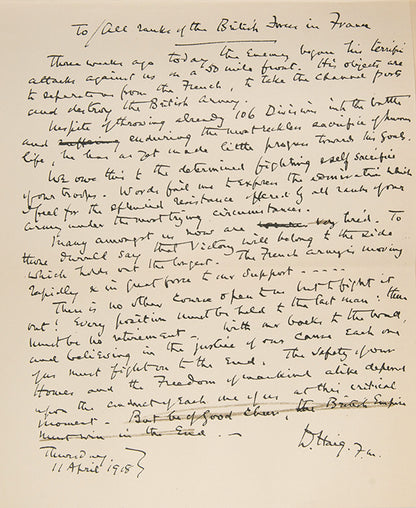 To/All ranks of the British Forces in France
Three weeks ago today the Enemy began his terrific
attacks against us on a 50 mile front. His objects are
to separate us from the French, to take the channel ports
and destroy the British Army.
Inspite of throwing already 106 Divisions into the battle
and suffering enduring the most reckless sacrifice of human
life, he has as yet made little progress towards his goals.
We owe this to the determined fighting & self sacrifice
of our troops. Words fail me to express the admiration which
I feel for the splendid resistance offered by all ranks of our
Army under the most trying circumstances.
Many amongst us now are very tired. To
those I would say that Victory will belong to the side
which holds out the longest. The French Army is moving
rapidly & in great force to our support - - - - -
There is no other course open to us but to fight it
out! Every position must be held to the last man: there
must be no retirement. With our backs to the wall,
and believing in the justice of our cause each one
of us must fight on to the End. The Safety of our
Homes and the Freedom of mankind alike depend
upon the conduct of each one of us at this critical
moment - But be of Good Cheer, the British Empire
must win in the End. -
D. Haig. F.M.
Thursday
11 April 1918